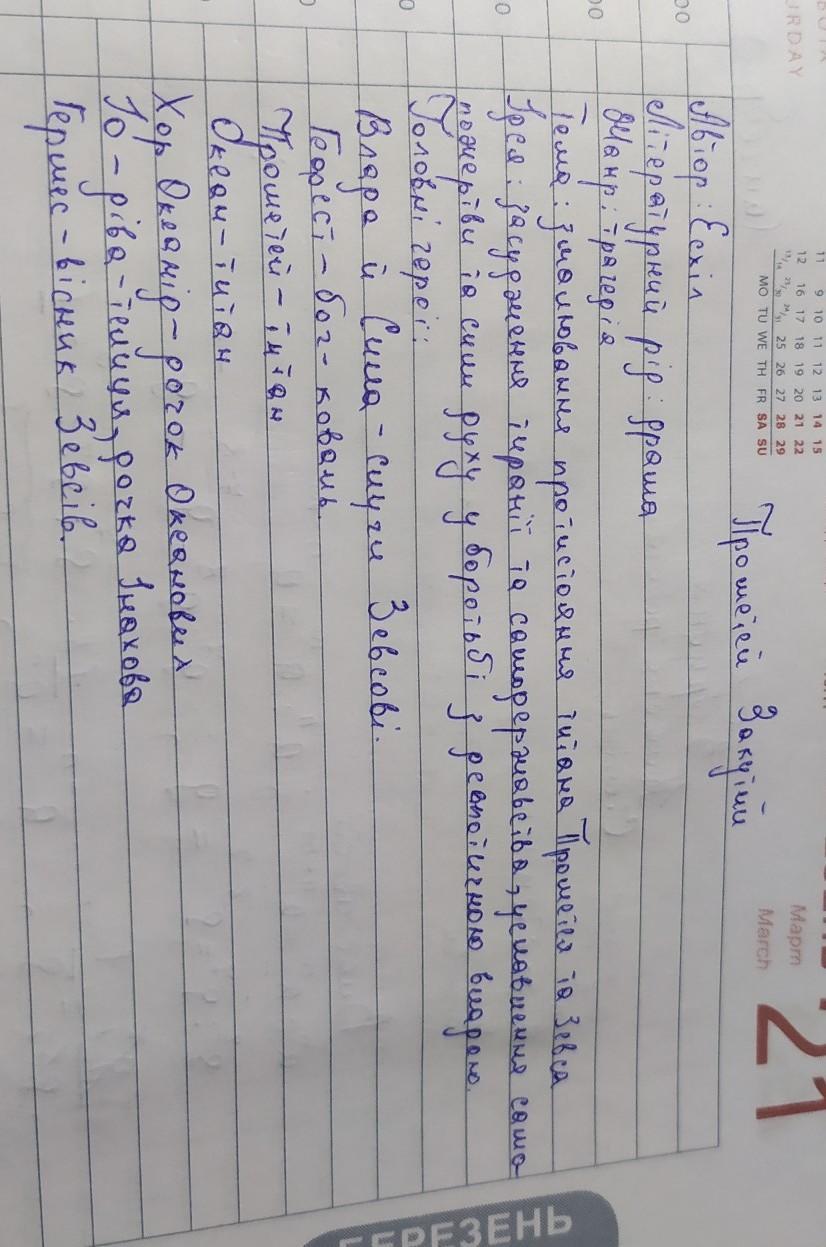 СУББОТА
SATURDAY
11 12 13 14 15
12 16 17 18 19 20 21 22
13/14 23/30 24/31 25 26 27 28 29
MO TU WE TH FR SA SU
Март
March
21
Прометей Закутий
Автор: Есхіл
Літературний рід: драма
Жанр: трагедія
Тема: змалювання протистояння титана Прометея та Зевса
Ідея: засудження тиранії та самодержавства, уславлення само-
пожертви та сили духу у боротьбі з деспотичною владою.
Головні герої:
Влада й Сила - слуги Зевсові.
Гефест - бог-коваль
Прометей - титан
Океан - титан
Хор Океанід - дочок Океанових
Іо - діва-телиця, дочка Інахова
Гермес - вісник Зевсів.
БЕРЕЗЕНЬ